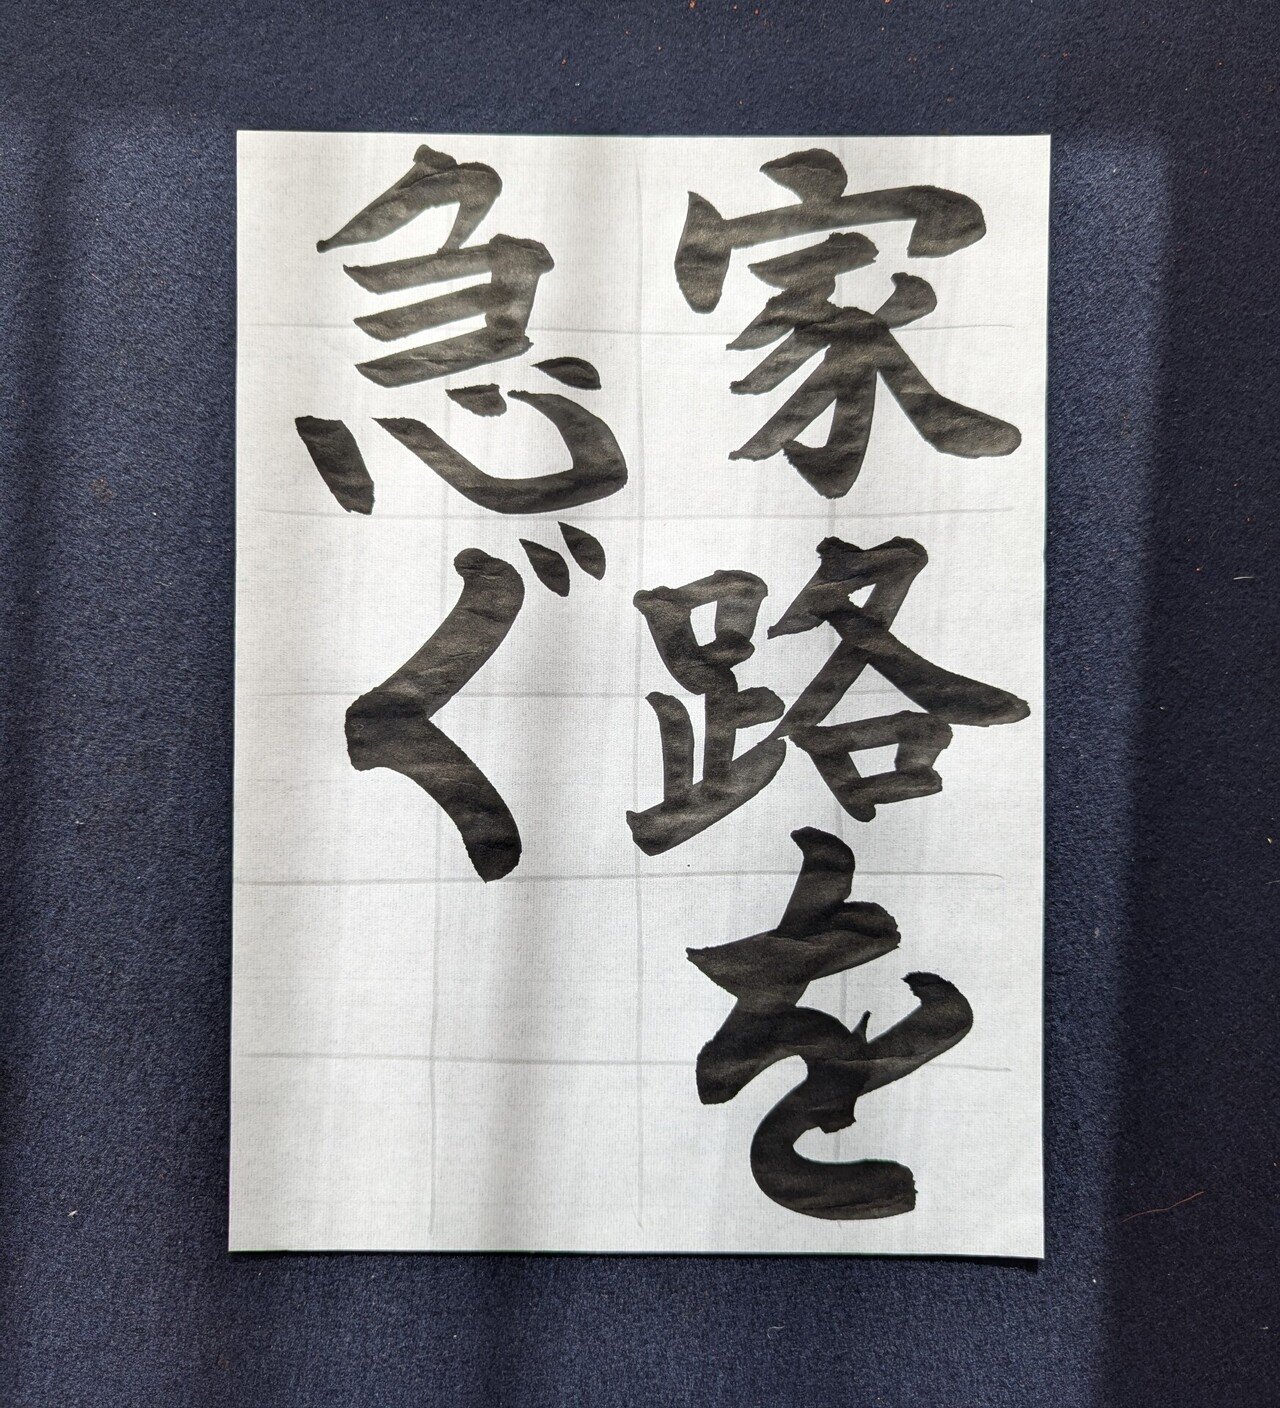 家路を
急ぐ